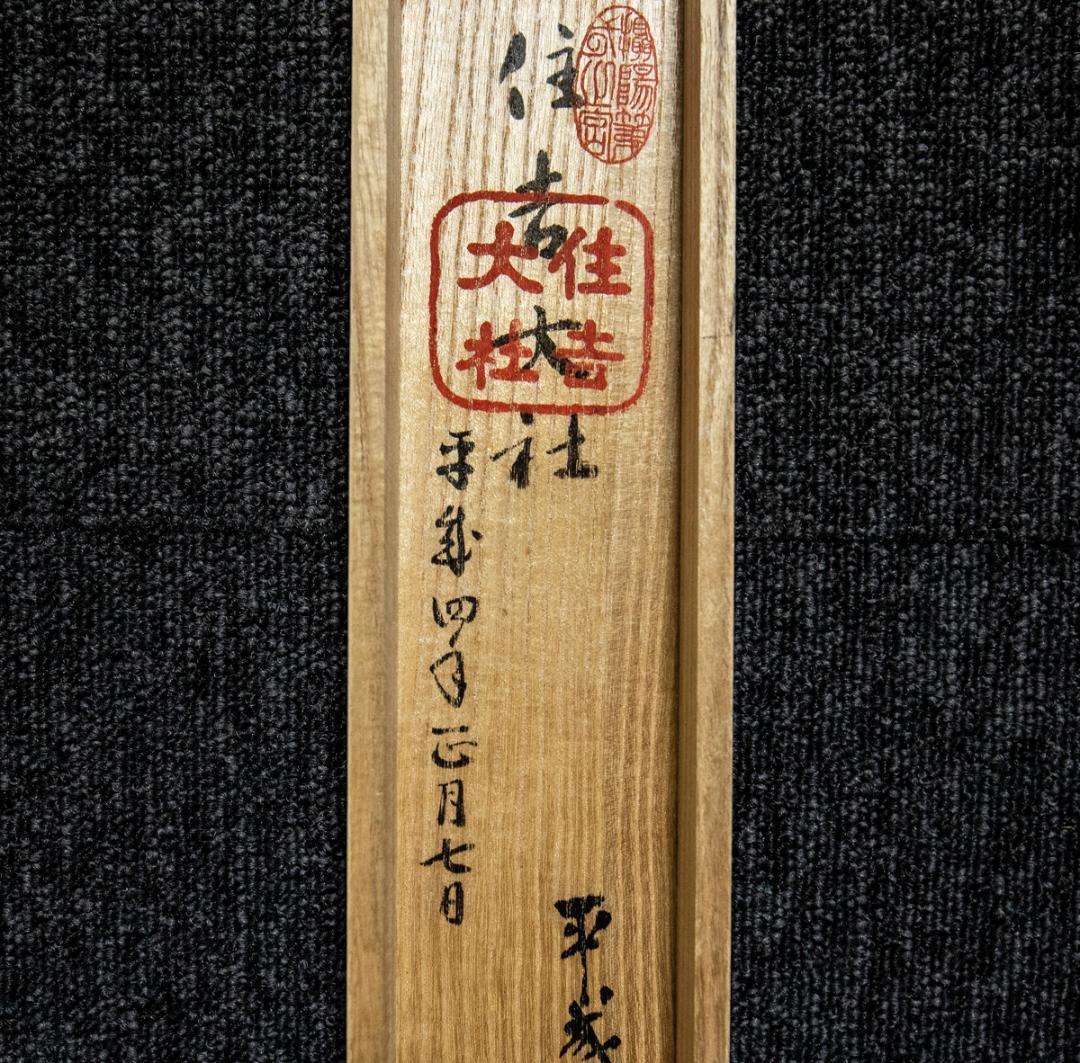 攝陽第
弌之宮
住吉大社
住吉
大社
平成四年正月七日
平成